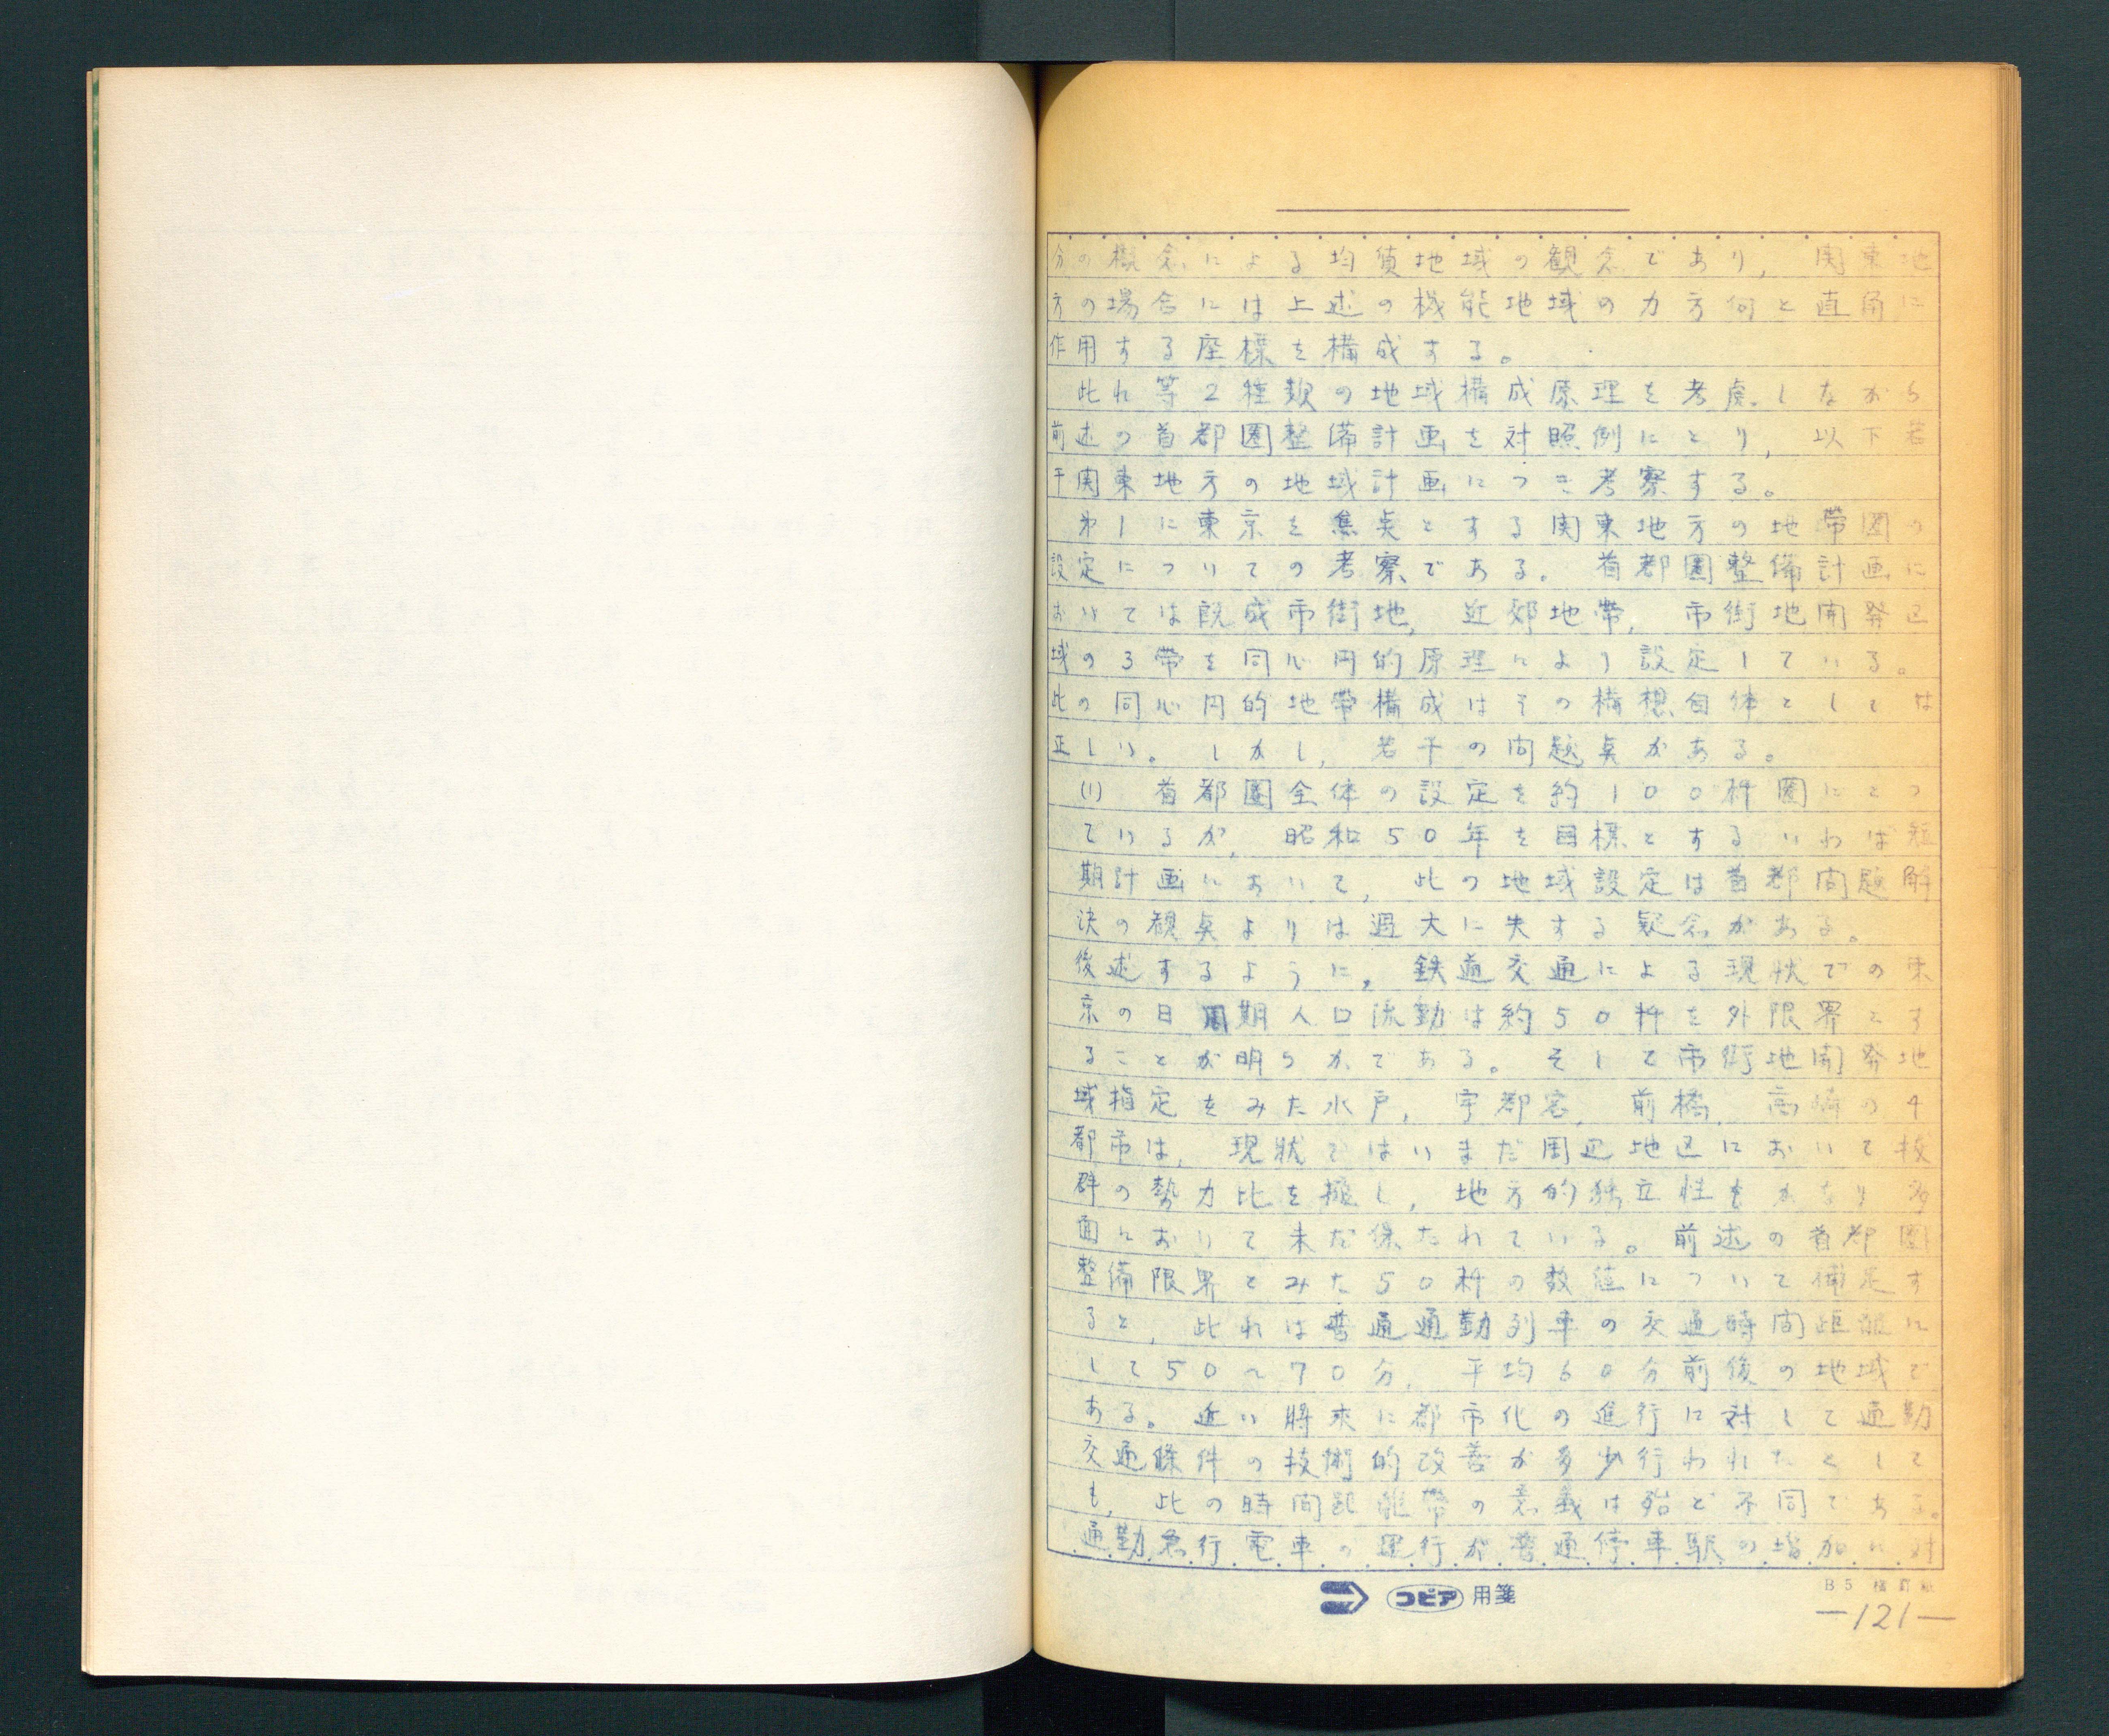 分の概念による均質地域の観念であり，関東地
方の場合には上述の機能地域の力方向と直角に
作用する座標を構成する。
此れ等2種類の地域構成原理を考慮しながら
前述の首都圏整備計画を対照例にとり，以下若
干関東地方の地域計画につき考察する。
第1に東京を焦点とする関東地方の地帯圏の
設定についての考察である。首都圏整備計画に
おいては既成市街地，近郊地帯，市街地開発区
域の3帯を同心円的原理により設定している。
此の同心円的地帯構成はその構想自体としては
正しい。しかし，若干の問題点がある。
(1) 首都圏全体の設定を約100粁圏にとつ
ているが，昭和50年を目標とするいわば短
期計画において，此の地域設定は首都問題解
決の観点よりは過大に失する疑念がある。
後述するように，鉄道交通による現状での東
京の日周期人口流動は約50粁を外限界とす
ることが明らかである。そして市街地開発地
域指定をみた水戸，宇都宮，前橋，高崎の4
都市は，現状ではいまだ周辺地区において抜
群の勢力比を擁し，地方的独立性もかなり多
面において未だ保たれている。前述の首都圏
整備限界とみた50粁の数値について補足す
ると，此れは普通通勤列車の交通時間距離に
して50～70分，平均60分前後の地域で
ある。近い将来に都市化の進行に対して通勤
交通條件の技術的改善が多少行われたとして
も，此の時間距離帯の意義は殆ど不同である。
通勤急行電車の運行が普通停車駅の増加に対
コピア 用箋
B5 横罫
—121—